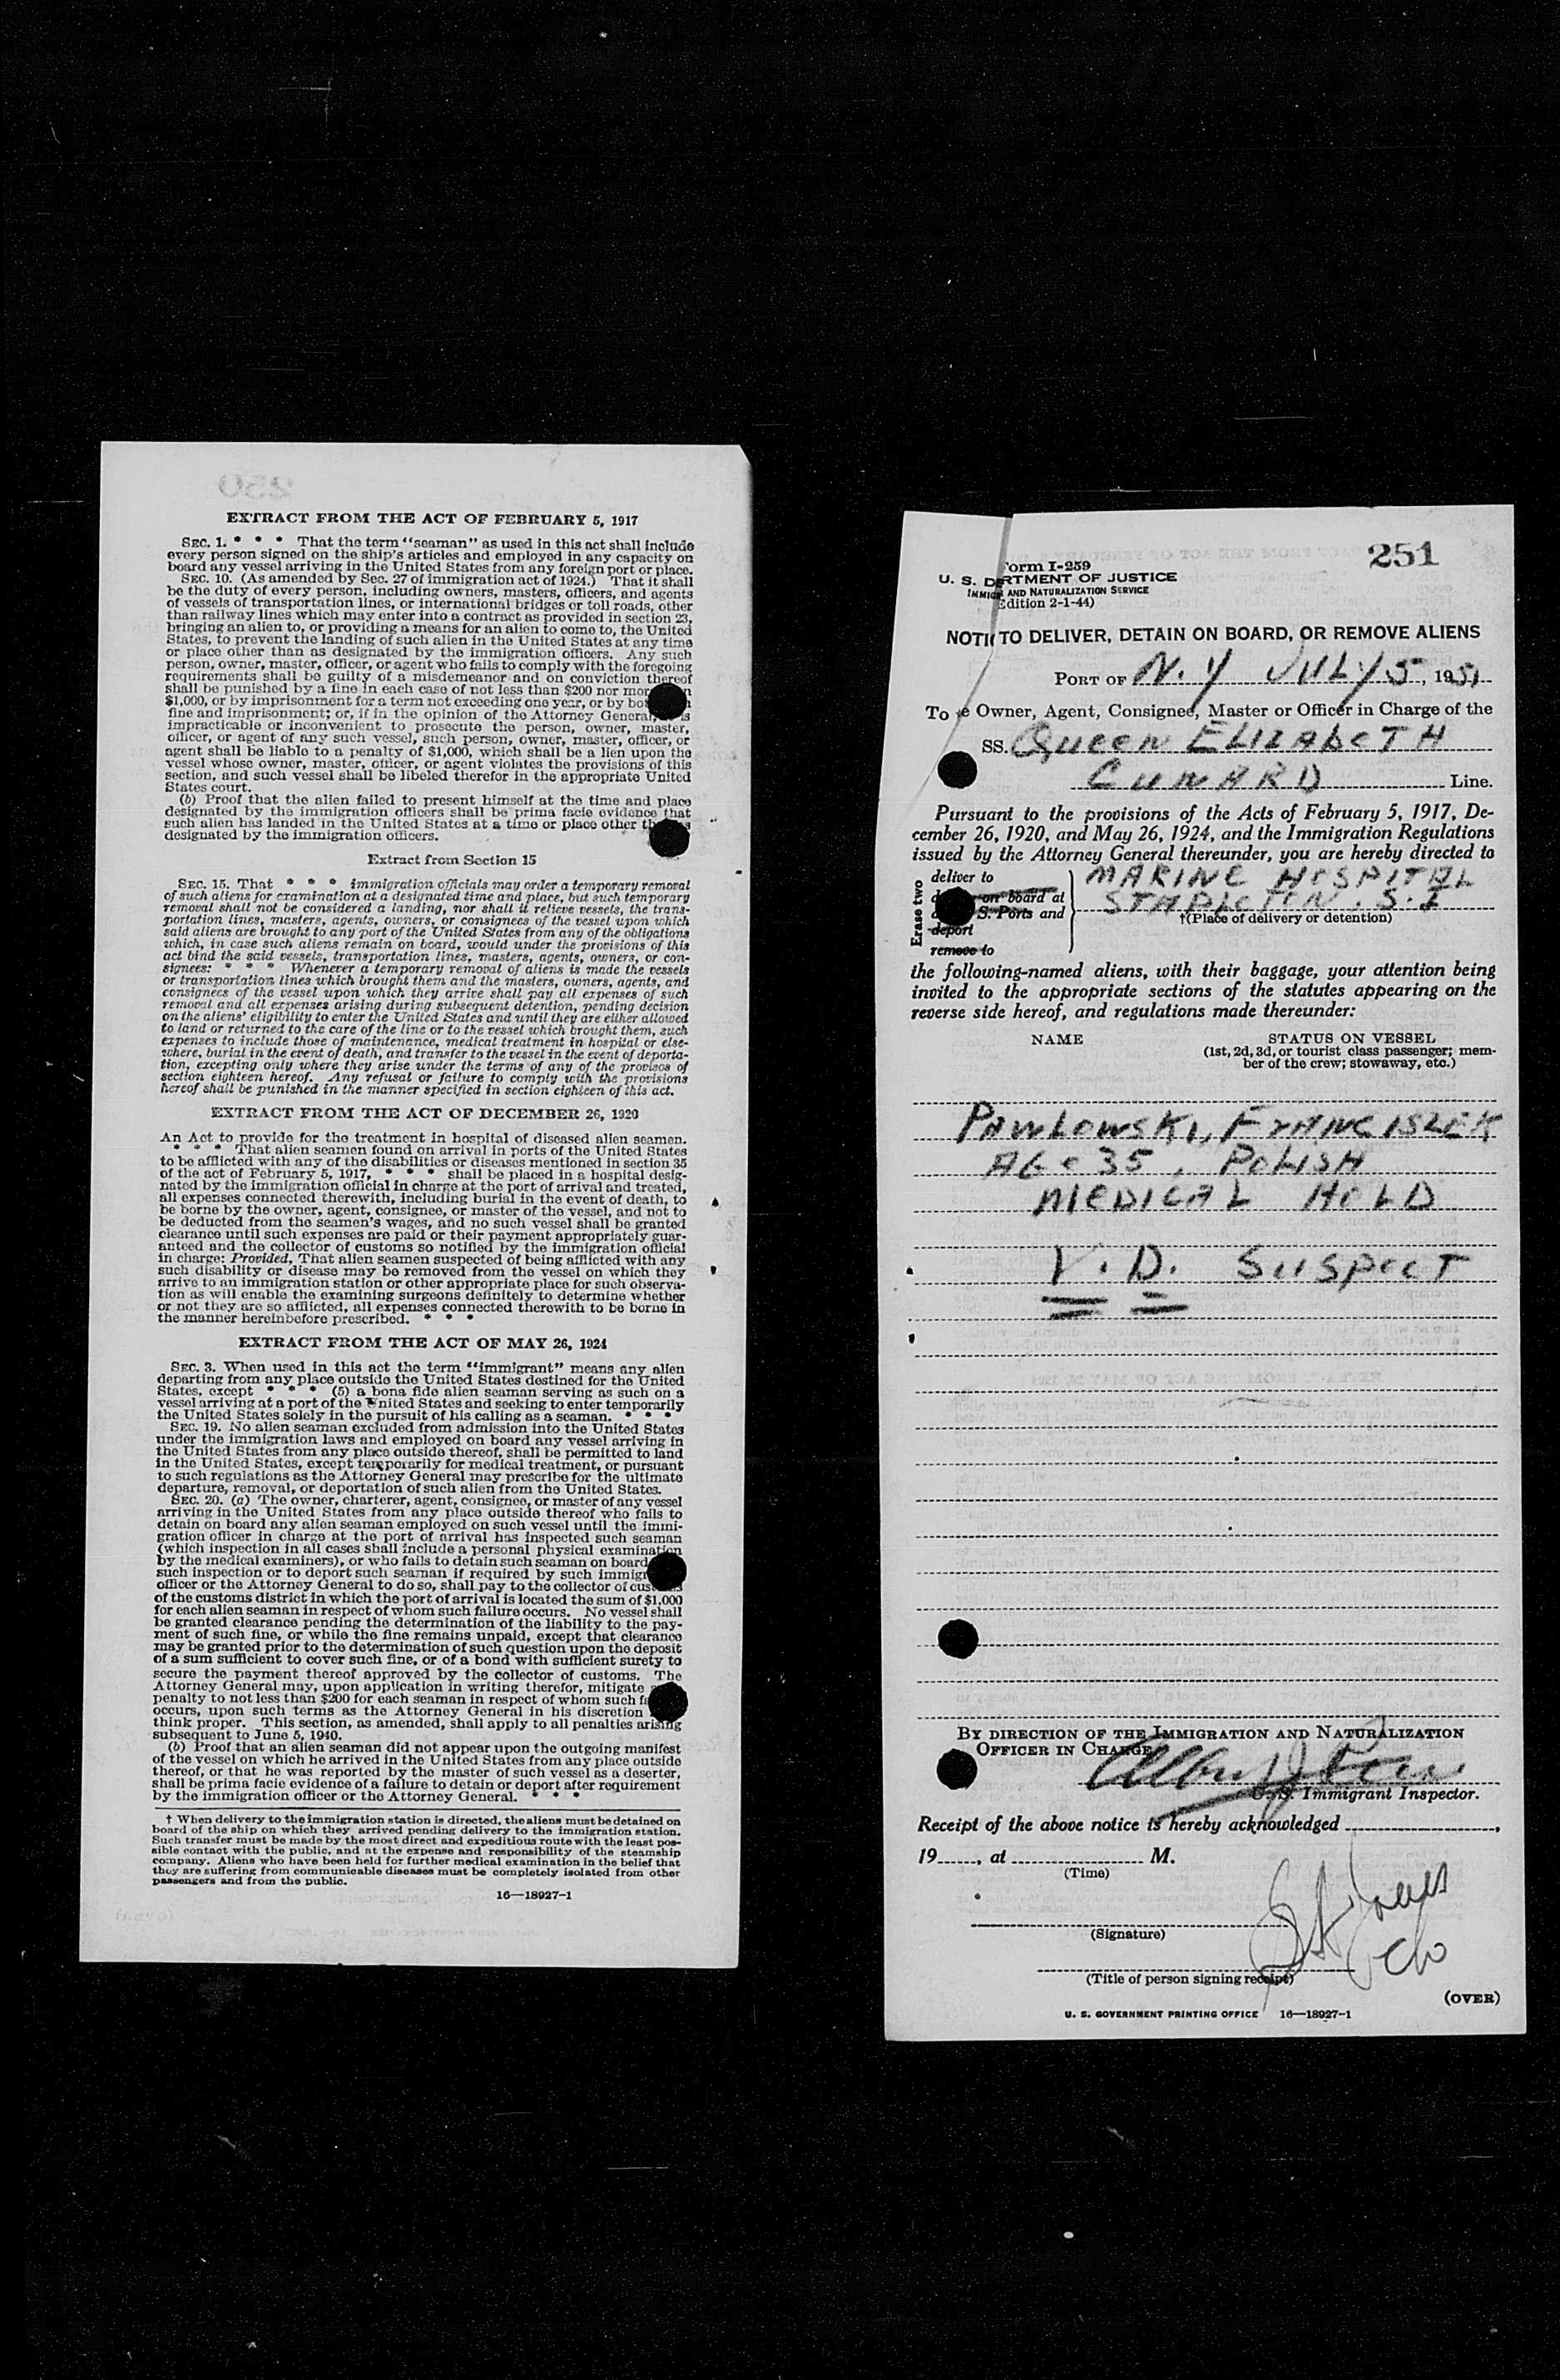 250
EXTRACT FROM THE ACT OF FEBRUARY 5, 1917
SEC. 1. * * * That the term "seaman" as used in this act shall include
every person signed on the ship's articles and employed in any capacity on
board any vessel arriving in the United States from any foreign port or place.
SEC. 10. (As amended by Sec. 27 of immigration act of 1924.) That it shall
be the duty of every person, including owners, masters, officers, and agents
of vessels of transportation lines, or international bridges or toll roads, other
than railway lines which may enter into a contract as provided in section 23,
bringing an alien to, or providing a means for an alien to come to, the United
States, to prevent the landing of such alien in the United States at any time
or place other than as designated by the immigration officers. Any such
person, owner, master, officer, or agent who fails to comply with the foregoing
requirements shall be guilty of a misdemeanor and on conviction thereof
shall be punished by a fine in each case of not less than $200 nor mor
$1,000, or by imprisonment for a term not exceeding one year, or by bo
fine and imprisonment; or, if in the opinion of the Attorney General, is
impracticable or inconvenient to prosecute the person, owner, master,
officer, or agent of any such vessel, such person, owner, master, officer, or
agent shall be liable to a penalty of $1,000, which shall be a lien upon the
vessel whose owner, master, officer, or agent violates the provisions of this
section, and such vessel shall be libeled therefor in the appropriate United
States court.
(b) Proof that the alien failed to present himself at the time and place
designated by the immigration officers shall be prima facie evidence that
such alien has landed in the United States at a time or place other th
designated by the immigration officers.
Extract from Section 15
SEC. 15. That * * * immigration officials may order a temporary removal
of such aliens for examination at a designated time and place, but such temporary
removal shall not be considered a landing, nor shall it relieve vessels, the trans-
portation lines, masters, agents, owners, or consignees of the vessel upon which
said aliens are brought to any port of the United States from any of the obligations
which, in case such aliens remain on board, would under the provisions of this
act bind the said vessels, transportation lines, masters, agents, owners, or con-
signees: * * * Whenever a temporary removal of aliens is made the vessels
or transportation lines which brought them and the masters, owners, agents, and
consignees of the vessel upon which they arrive shall pay all expenses of such
removal and all expenses arising during subsequent detention, pending decision
on the aliens' eligibility to enter the United States and until they are either allowed
to land or returned to the care of the line or to the vessel which brought them, such
expenses to include those of maintenance, medical treatment in hospital or else-
where, burial in the event of death, and transfer to the vessel in the event of deporta-
tion, excepting only where they arise under the terms of any of the provisos of
section eighteen hereof. Any refusal or failure to comply with the provisions
hereof shall be punished in the manner specified in section eighteen of this act.
EXTRACT FROM THE ACT OF DECEMBER 26, 1920
An Act to provide for the treatment in hospital of diseased alien seamen.
* * * That alien seamen found on arrival in ports of the United States
to be afflicted with any of the disabilities or diseases mentioned in section 35
of the act of February 5, 1917, * * * shall be placed in a hospital desig-
nated by the immigration official in charge at the port of arrival and treated,
all expenses connected therewith, including burial in the event of death, to
be borne by the owner, agent, consignee, or master of the vessel, and not to
be deducted from the seamen's wages, and no such vessel shall be granted
clearance until such expenses are paid or their payment appropriately guar-
anteed and the collector of customs so notified by the immigration official
in charge: Provided, That alien seamen suspected of being afflicted with any
such disability or disease may be removed from the vessel on which they
arrive to an immigration station or other appropriate place for such observa-
tion as will enable the examining surgeons definitely to determine whether
or not they are so afflicted, all expenses connected therewith to be borne in
the manner hereinbefore prescribed. * * *
EXTRACT FROM THE ACT OF MAY 26, 1924
SEC. 3. When used in this act the term "immigrant" means any alien
departing from any place outside the United States destined for the United
States, except * * * (5) a bona fide alien seaman serving as such on a
vessel arriving at a port of the United States and seeking to enter temporarily
the United States solely in the pursuit of his calling as a seaman. * * *
SEC. 19. No alien seaman excluded from admission into the United States
under the immigration laws and employed on board any vessel arriving in
the United States from any place outside thereof, shall be permitted to land
in the United States, except temporarily for medical treatment, or pursuant
to such regulations as the Attorney General may prescribe for the ultimate
departure, removal, or deportation of such alien from the United States.
SEC. 20. (a) The owner, charterer, agent, consignee, or master of any vessel
arriving in the United States from any place outside thereof who fails to
detain on board any alien seaman employed on such vessel until the immi-
gration officer in charge at the port of arrival has inspected such seaman
(which inspection in all cases shall include a personal physical examination
by the medical examiners), or who fails to detain such seaman on board
such inspection or to deport such seaman if required by such immigr
officer or the Attorney General to do so, shall pay to the collector of cus
of the customs district in which the port of arrival is located the sum of $1,000
for each alien seaman in respect of whom such failure occurs. No vessel shall
be granted clearance pending the determination of the liability to the pay-
ment of such fine, or while the fine remains unpaid, except that clearance
may be granted prior to the determination of such question upon the deposit
of a sum sufficient to cover such fine, or of a bond with sufficient surety to
secure the payment thereof approved by the collector of customs. The
Attorney General may, upon application in writing therefor, mitigate
penalty to not less than $200 for each seaman in respect of whom such fa
occurs, upon such terms as the Attorney General in his discretion
think proper. This section, as amended, shall apply to all penalties arising
subsequent to June 5, 1940.
(b) Proof that an alien seaman did not appear upon the outgoing manifest
of the vessel on which he arrived in the United States from any place outside
thereof, or that he was reported by the master of such vessel as a deserter,
shall be prima facie evidence of a failure to detain or deport after requirement
by the immigration officer or the Attorney General. * * *
† When delivery to the immigration station is directed, the aliens must be detained on
board of the ship on which they arrived pending delivery to the immigration station.
Such transfer must be made by the most direct and expeditious route with the least pos-
sible contact with the public, and at the expense and responsibility of the steamship
company. Aliens who have been held for further medical examination in the belief that
they are suffering from communicable diseases must be completely isolated from other
passengers and from the public.
16—18927-1
251
orm I-259
U. S. D RTMENT OF JUSTICE
IMMIG AND NATURALIZATION SERVICE
Edition 2-1-44)
NOTI TO DELIVER, DETAIN ON BOARD, OR REMOVE ALIENS
PORT OF N. Y JULY 5, 1951
To e Owner, Agent, Consignee, Master or Officer in Charge of the
SS. QUEEN ELIZAbETH
CUNARD Line.
Pursuant to the provisions of the Acts of February 5, 1917, De-
cember 26, 1920, and May 26, 1924, and the Immigration Regulations
issued by the Attorney General thereunder, you are hereby directed to
Erase two
deliver to MARINE HOSPITAL
on board at STAPLETON. S. I
S. Ports and †(Place of delivery or detention)
deport
remove to
the following-named aliens, with their baggage, your attention being
invited to the appropriate sections of the statutes appearing on the
reverse side hereof, and regulations made thereunder:
NAME STATUS ON VESSEL
(1st, 2d, 3d, or tourist class passenger; mem-
ber of the crew; stowaway, etc.)
PAWLOWSKI, FRANCISZEK
AGE 35, POLISH
MEDICAL HOLD
V. D. SUSPECT
BY DIRECTION OF THE IMMIGRATION AND NATURALIZATION
OFFICER IN CHARGE
U. S. Immigrant Inspector.
Receipt of the above notice is hereby acknowledged ,
19 , at M.
(Time)
(Signature)
(Title of person signing receipt)
(OVER)
U. S. GOVERNMENT PRINTING OFFICE 16—18927-1